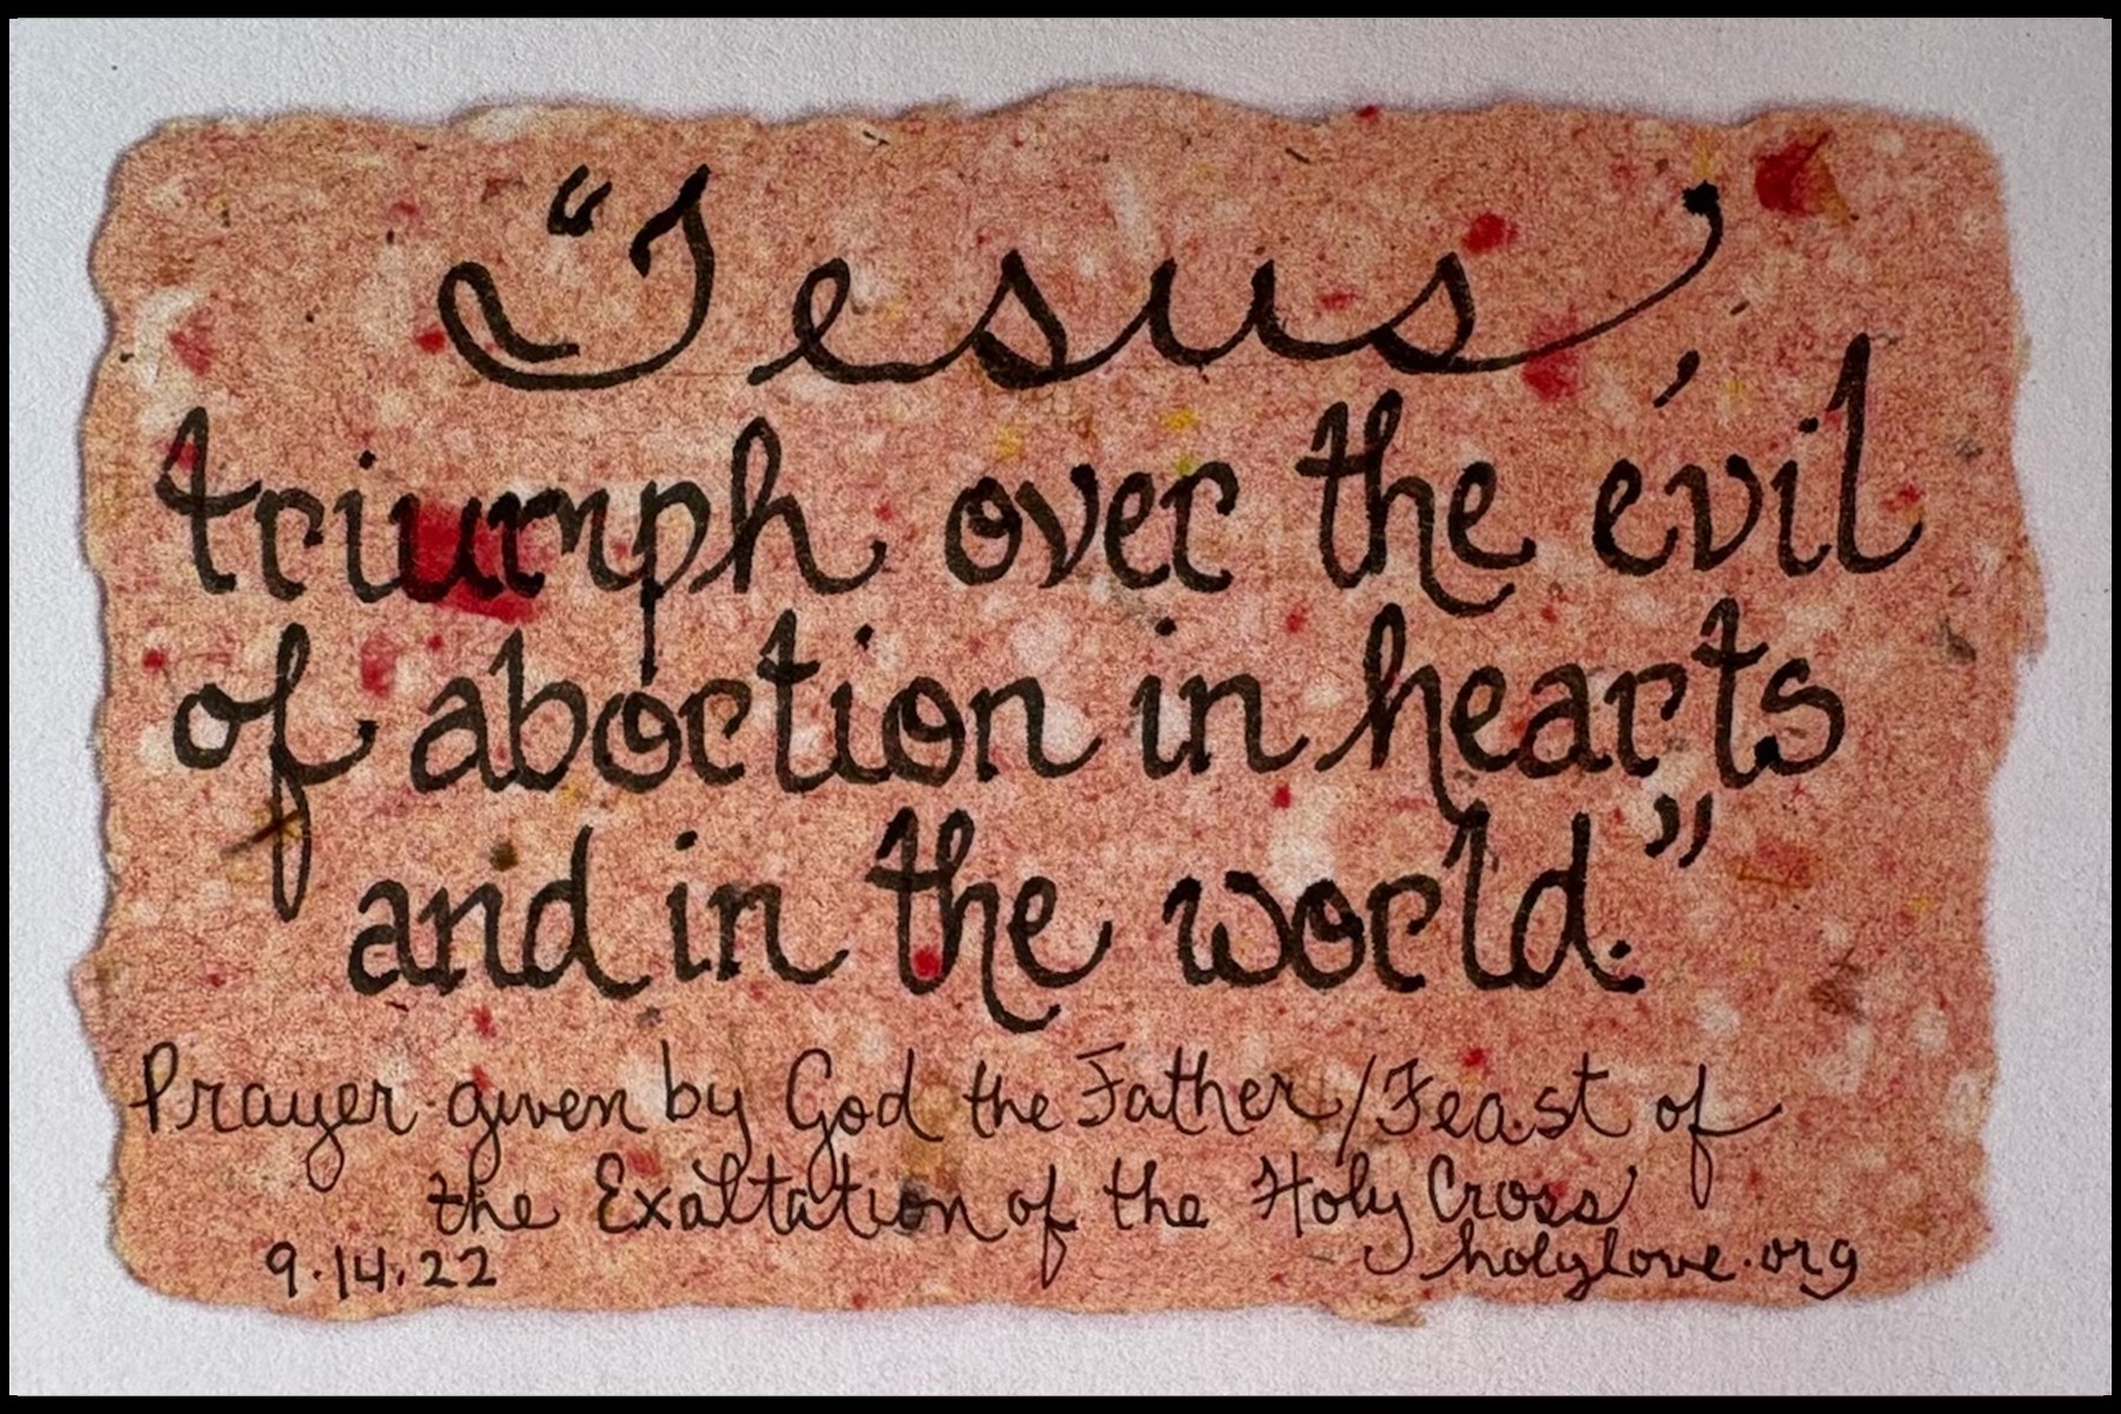 "Jesus,
triumph over the evil
of abortion in hearts
and in the world."
Prayer given by God the Father/Feast of
the Exaltation of the Holy Cross
9.14.22 holylove.org